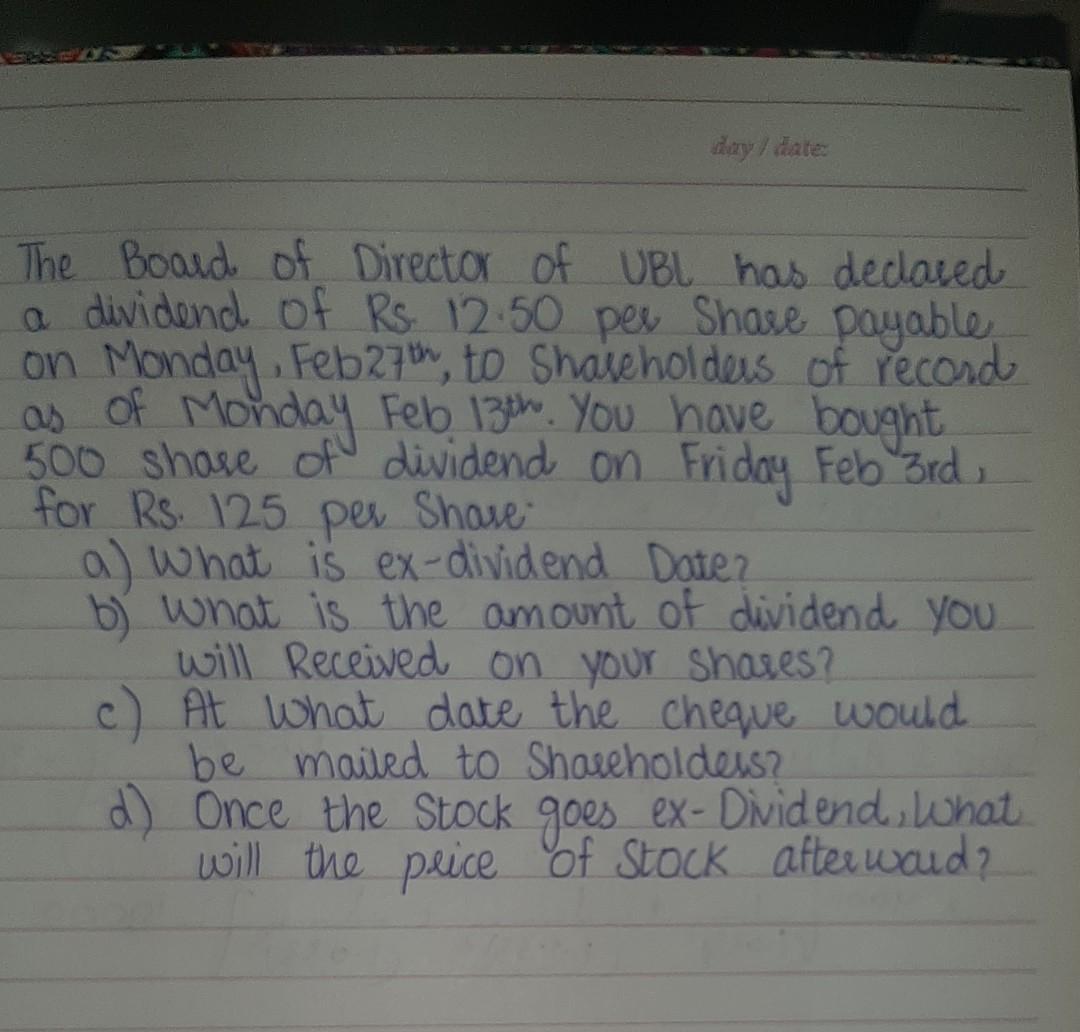 day / date:
The Board of Director of UBL has declared
a dividend of Rs 12.50 per Share payable
on Monday, Feb 27th, to Shareholders of record
as of Monday Feb 13th. You have bought
500 share of dividend on Friday Feb 3rd,
for Rs. 125 per Share.
a) What is ex-dividend Date?
b) What is the amount of dividend you
will Received on your shares?
c) At what date the cheque would
be mailed to Shareholders?
d) Once the Stock goes ex-Dividend, What
will the price of Stock afterward?